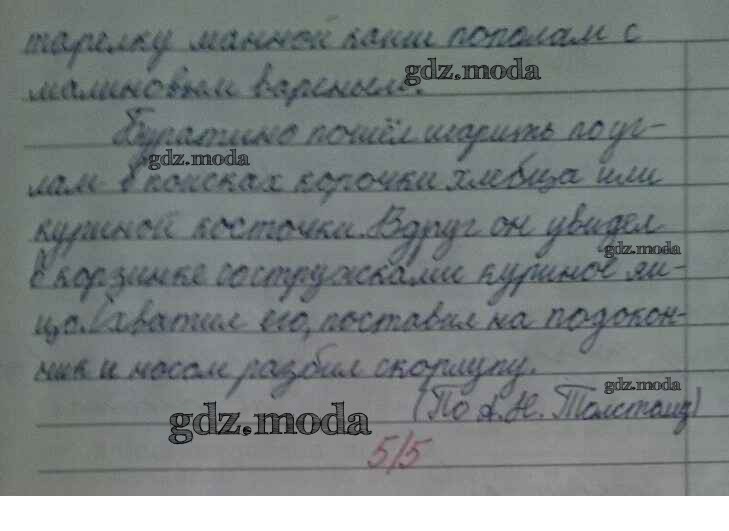 тарелку манной каши пополам с
gdz.moda
малиновым вареньем.
Буратино пошёл шарить по уг-
gdz.moda
лам в поисках корочки хлебца или
куриной косточки. Вдруг он увидел
gdz.moda
в корзинке со стружками куриное яй-
цо. Схватил его, поставил на подокон-
ник и носом разбил скорлупу.
gdz.moda
(По А. Н. Толстому)
gdz.moda
5/5
gdz.moda
gdz.moda